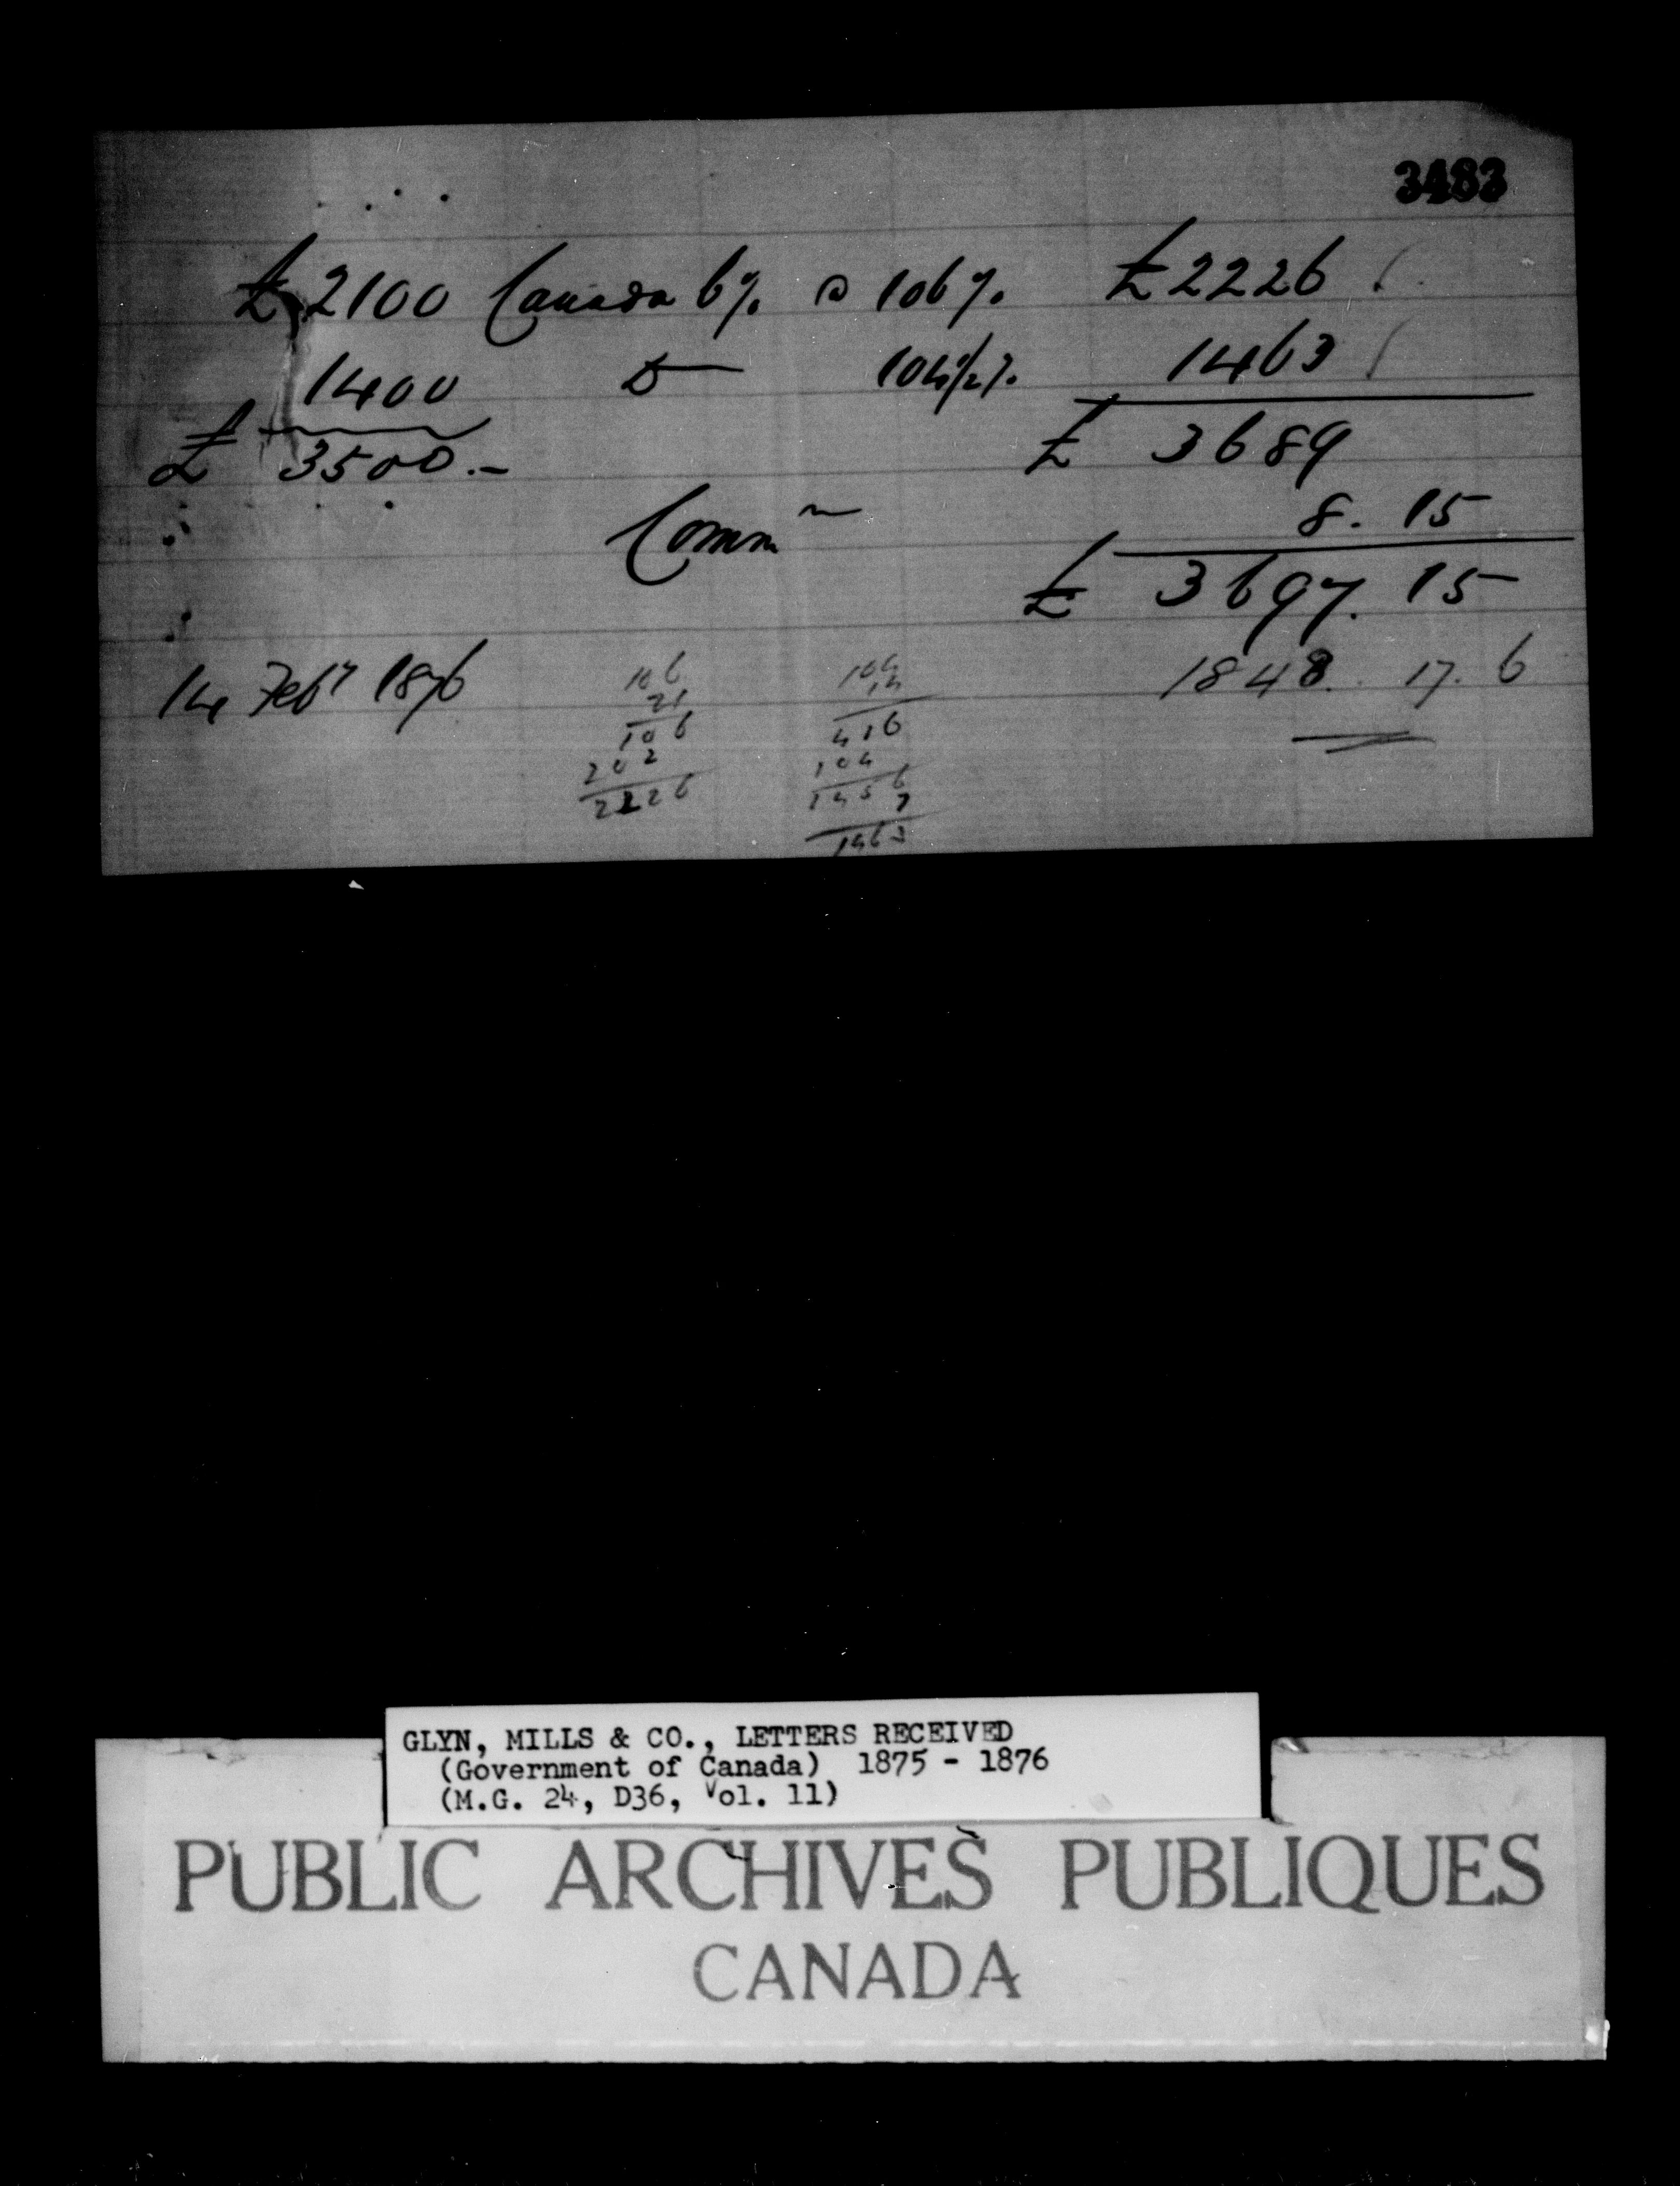 3483
£ 2100 Canada 6%. @ 106%. £2226
1400 Do 104½%. 1463
£ 3500.- £ 3689
Commn 8. 15
£ 3697. 15
14 Feby 1876 1848. 17. 6
106 104
21 14
106 416
202 104
2226 1456
7
1463
GLYN, MILLS & CO., LETTERS RECEIVED
(Government of Canada) 1875 - 1876
(M.G. 24, D36, Vol. 11)
PUBLIC ARCHIVES PUBLIQUES
CANADA